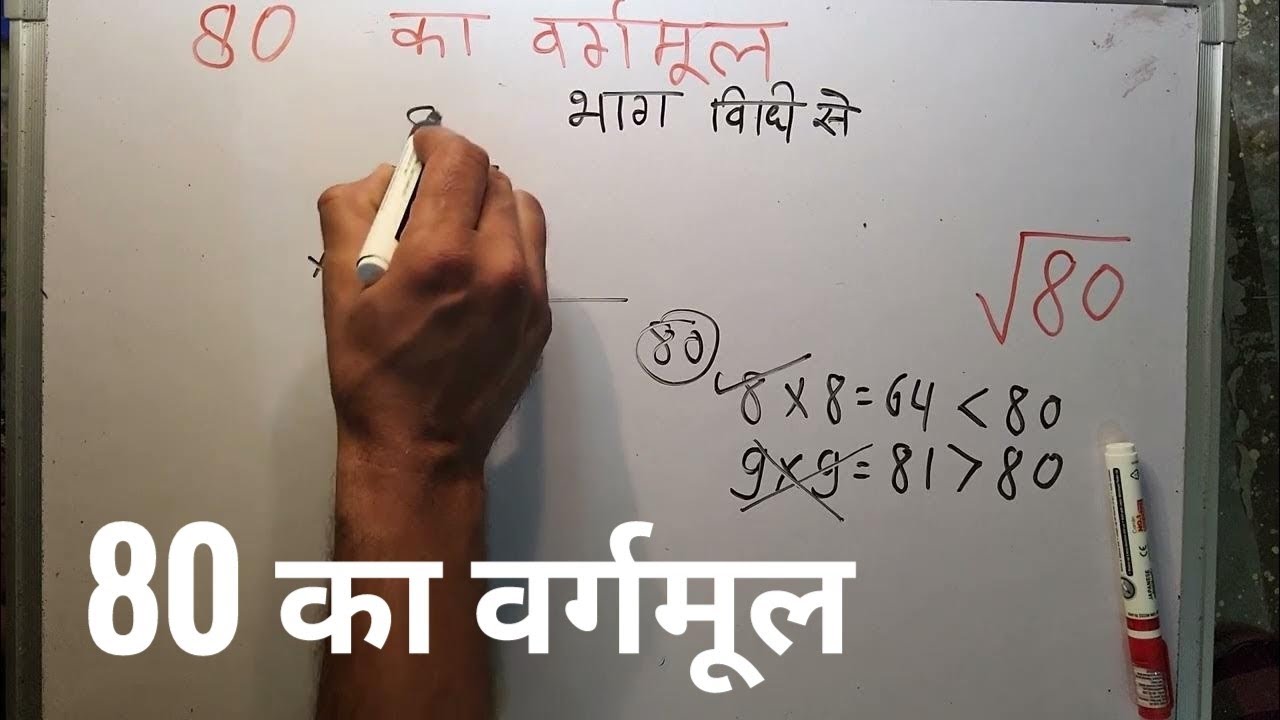 80 का वर्गमूल
भाग विधि से
√80
80
8 x 8 = 64 < 80
9 x 9 = 81 > 80
80 का वर्गमूल